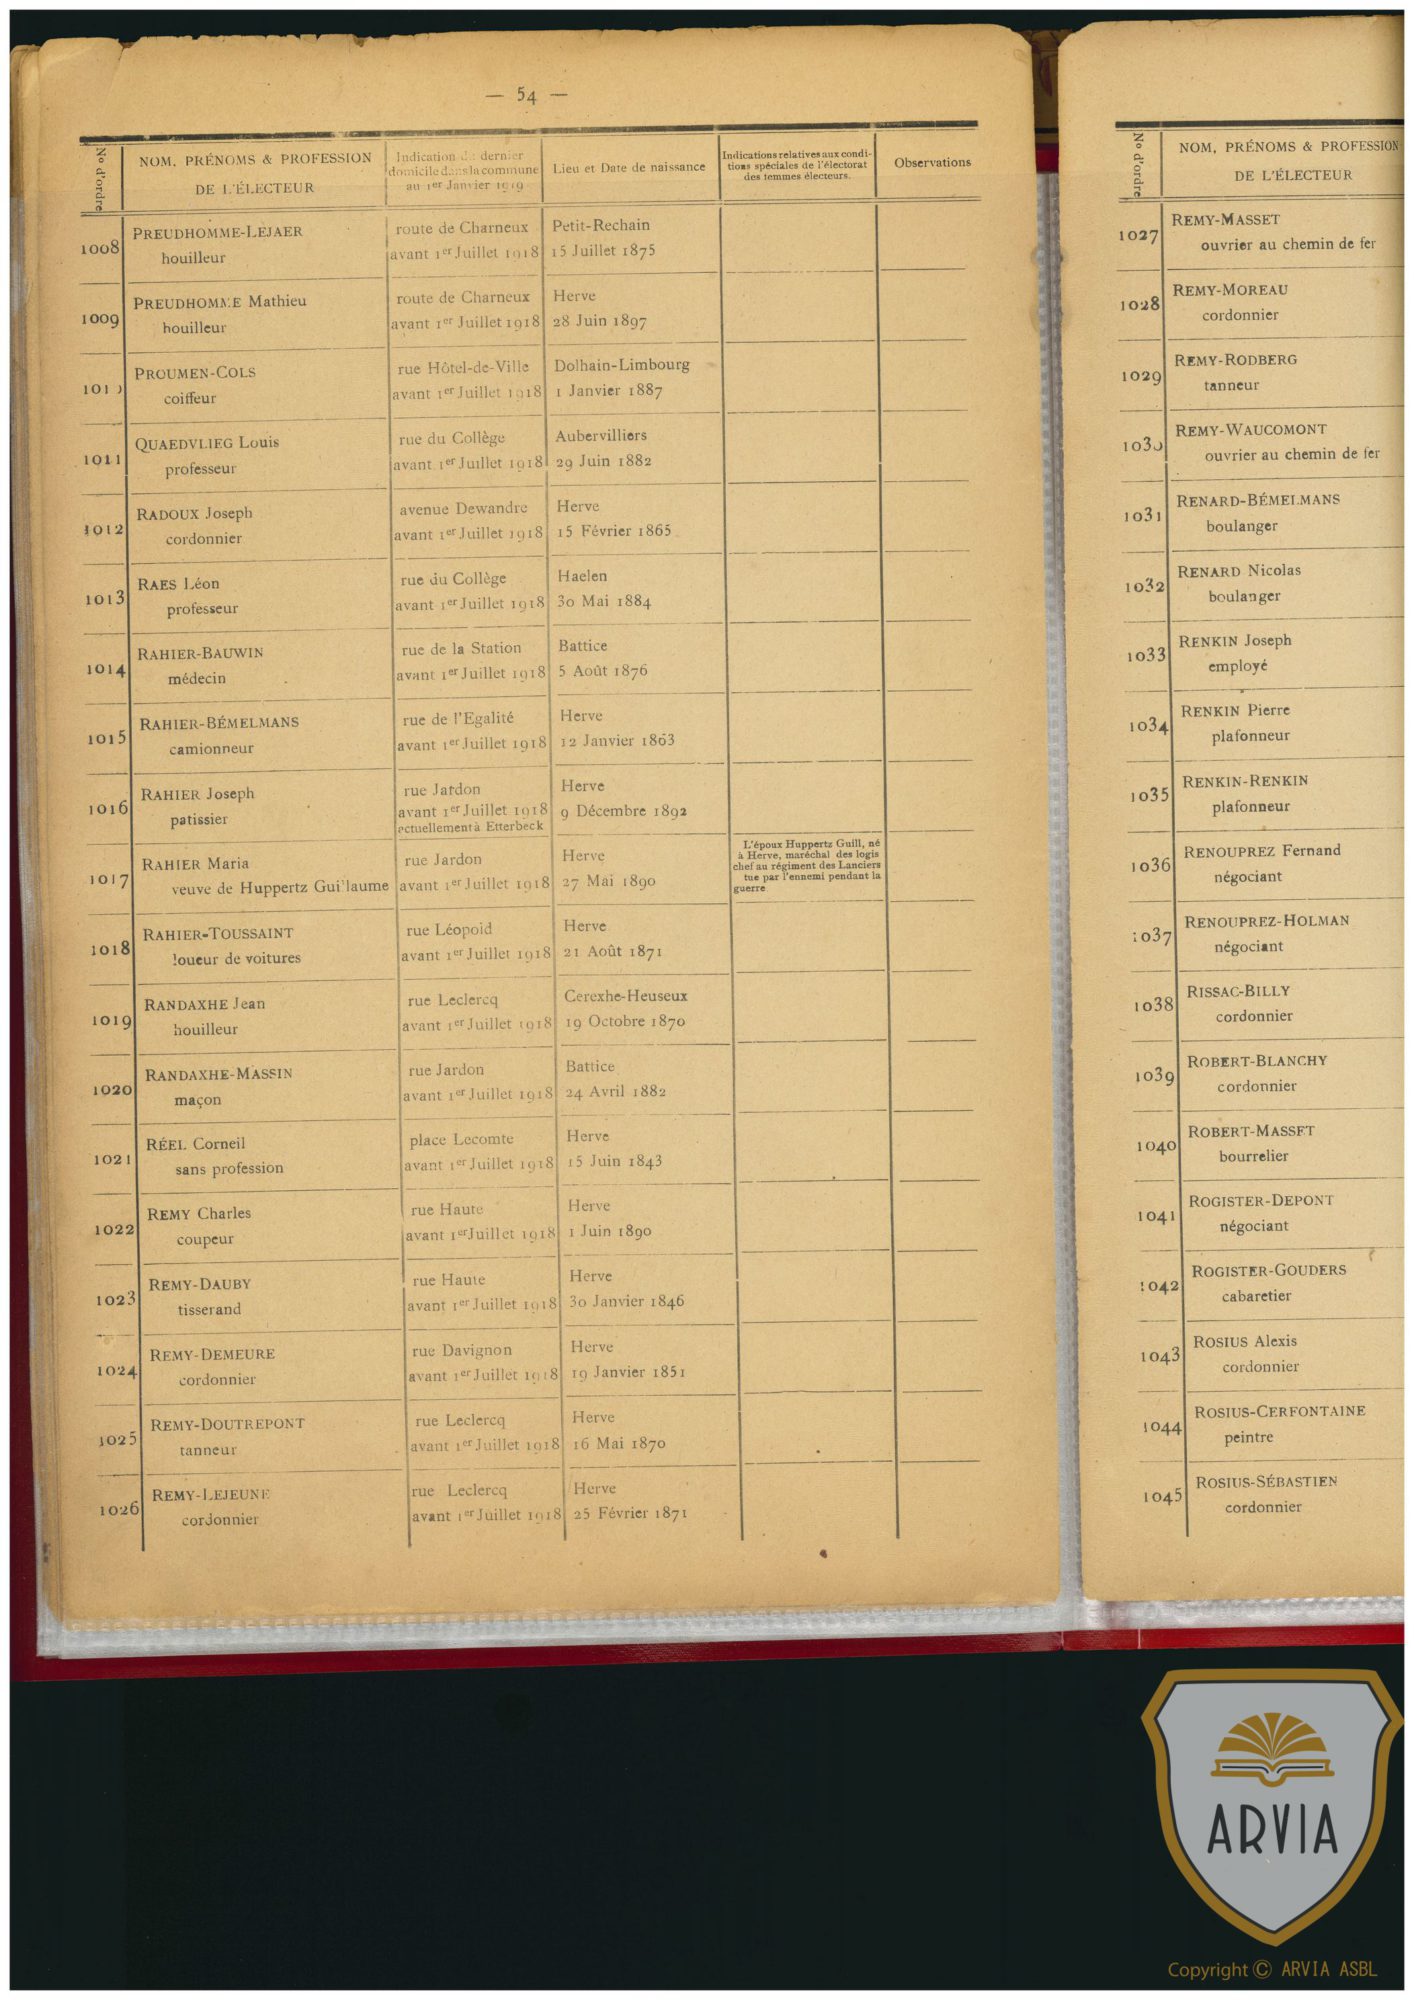 — 54 —
No d'ordre
NOM, PRÉNOMS & PROFESSION
DE L'ÉLECTEUR
Indication du dernier
domicile dans la commune
au 1er Janvier 1919
Lieu et Date de naissance
Indications relatives aux condi-
tions spéciales de l'électorat
des femmes électeurs.
Observations
1008
PREUDHOMME-LEJAER
houilleur
route de Charneux
avant 1er Juillet 1918
Petit-Rechain
15 Juillet 1875
1009
PREUDHOMME Mathieu
houilleur
route de Charneux
avant 1er Juillet 1918
Herve
28 Juin 1897
1010
PROUMEN-COLS
coiffeur
rue Hôtel-de-Ville
avant 1er Juillet 1918
Dolhain-Limbourg
1 Janvier 1887
1011
QUAEDVLIEG Louis
professeur
rue du Collège
avant 1er Juillet 1918
Aubervilliers
29 Juin 1882
1012
RADOUX Joseph
cordonnier
avenue Dewandre
avant 1er Juillet 1918
Herve
15 Février 1865
1013
RAES Léon
professeur
rue du Collège
avant 1er Juillet 1918
Haelen
30 Mai 1884
1014
RAHIER-BAUWIN
médecin
rue de la Station
avant 1er Juillet 1918
Battice
5 Août 1876
1015
RAHIER-BÉMELMANS
camionneur
rue de l'Egalité
avant 1er Juillet 1918
Herve
12 Janvier 1863
1016
RAHIER Joseph
patissier
rue Jardon
avant 1er Juillet 1918
actuellement à Etterbeck
Herve
9 Décembre 1892
1017
RAHIER Maria
veuve de Huppertz Guillaume
rue Jardon
avant 1er Juillet 1918
Herve
27 Mai 1890
L'époux Huppertz Guill, né
à Herve, maréchal des logis
chef au régiment des Lanciers
tue par l'ennemi pendant la
guerre
1018
RAHIER-TOUSSAINT
loueur de voitures
rue Léopold
avant 1er Juillet 1918
Herve
21 Août 1871
1019
RANDAXHE Jean
houilleur
rue Leclercq
avant 1er Juillet 1918
Cerexhe-Heuseux
19 Octobre 1870
1020
RANDAXHE-MASSIN
maçon
rue Jardon
avant 1er Juillet 1918
Battice
24 Avril 1882
1021
RÉEL Corneil
sans profession
place Lecomte
avant 1er Juillet 1918
Herve
15 Juin 1843
1022
REMY Charles
coupeur
rue Haute
avant 1er Juillet 1918
Herve
1 Juin 1890
1023
REMY-DAUBY
tisserand
rue Haute
avant 1er Juillet 1918
Herve
30 Janvier 1846
1024
REMY-DEMEURE
cordonnier
rue Davignon
avant 1er Juillet 1918
Herve
19 Janvier 1851
1025
REMY-DOUTREPONT
tanneur
rue Leclercq
avant 1er Juillet 1918
Herve
16 Mai 1870
1026
REMY-LEJEUNE
cordonnier
rue Leclercq
avant 1er Juillet 1918
Herve
25 Février 1871
No d'ordre
NOM, PRÉNOMS & PROFESSION
DE L'ÉLECTEUR
1027
REMY-MASSET
ouvrier au chemin de fer
1028
REMY-MOREAU
cordonnier
1029
REMY-RODBERG
tanneur
1030
REMY-WAUCOMONT
ouvrier au chemin de fer
1031
RENARD-BÉMELMANS
boulanger
1032
RENARD Nicolas
boulanger
1033
RENKIN Joseph
employé
1034
RENKIN Pierre
plafonneur
1035
RENKIN-RENKIN
plafonneur
1036
RENOUPREZ Fernand
négociant
1037
RENOUPREZ-HOLMAN
négociant
1038
RISSAC-BILLY
cordonnier
1039
ROBERT-BLANCHY
cordonnier
1040
ROBERT-MASSET
bourrelier
1041
ROGISTER-DEPONT
négociant
1042
ROGISTER-GOUDERS
cabaretier
1043
ROSIUS Alexis
cordonnier
1044
ROSIUS-CERFONTAINE
peintre
1045
ROSIUS-SÉBASTIEN
cordonnier
ARVIA
Copyright © ARVIA ASBL